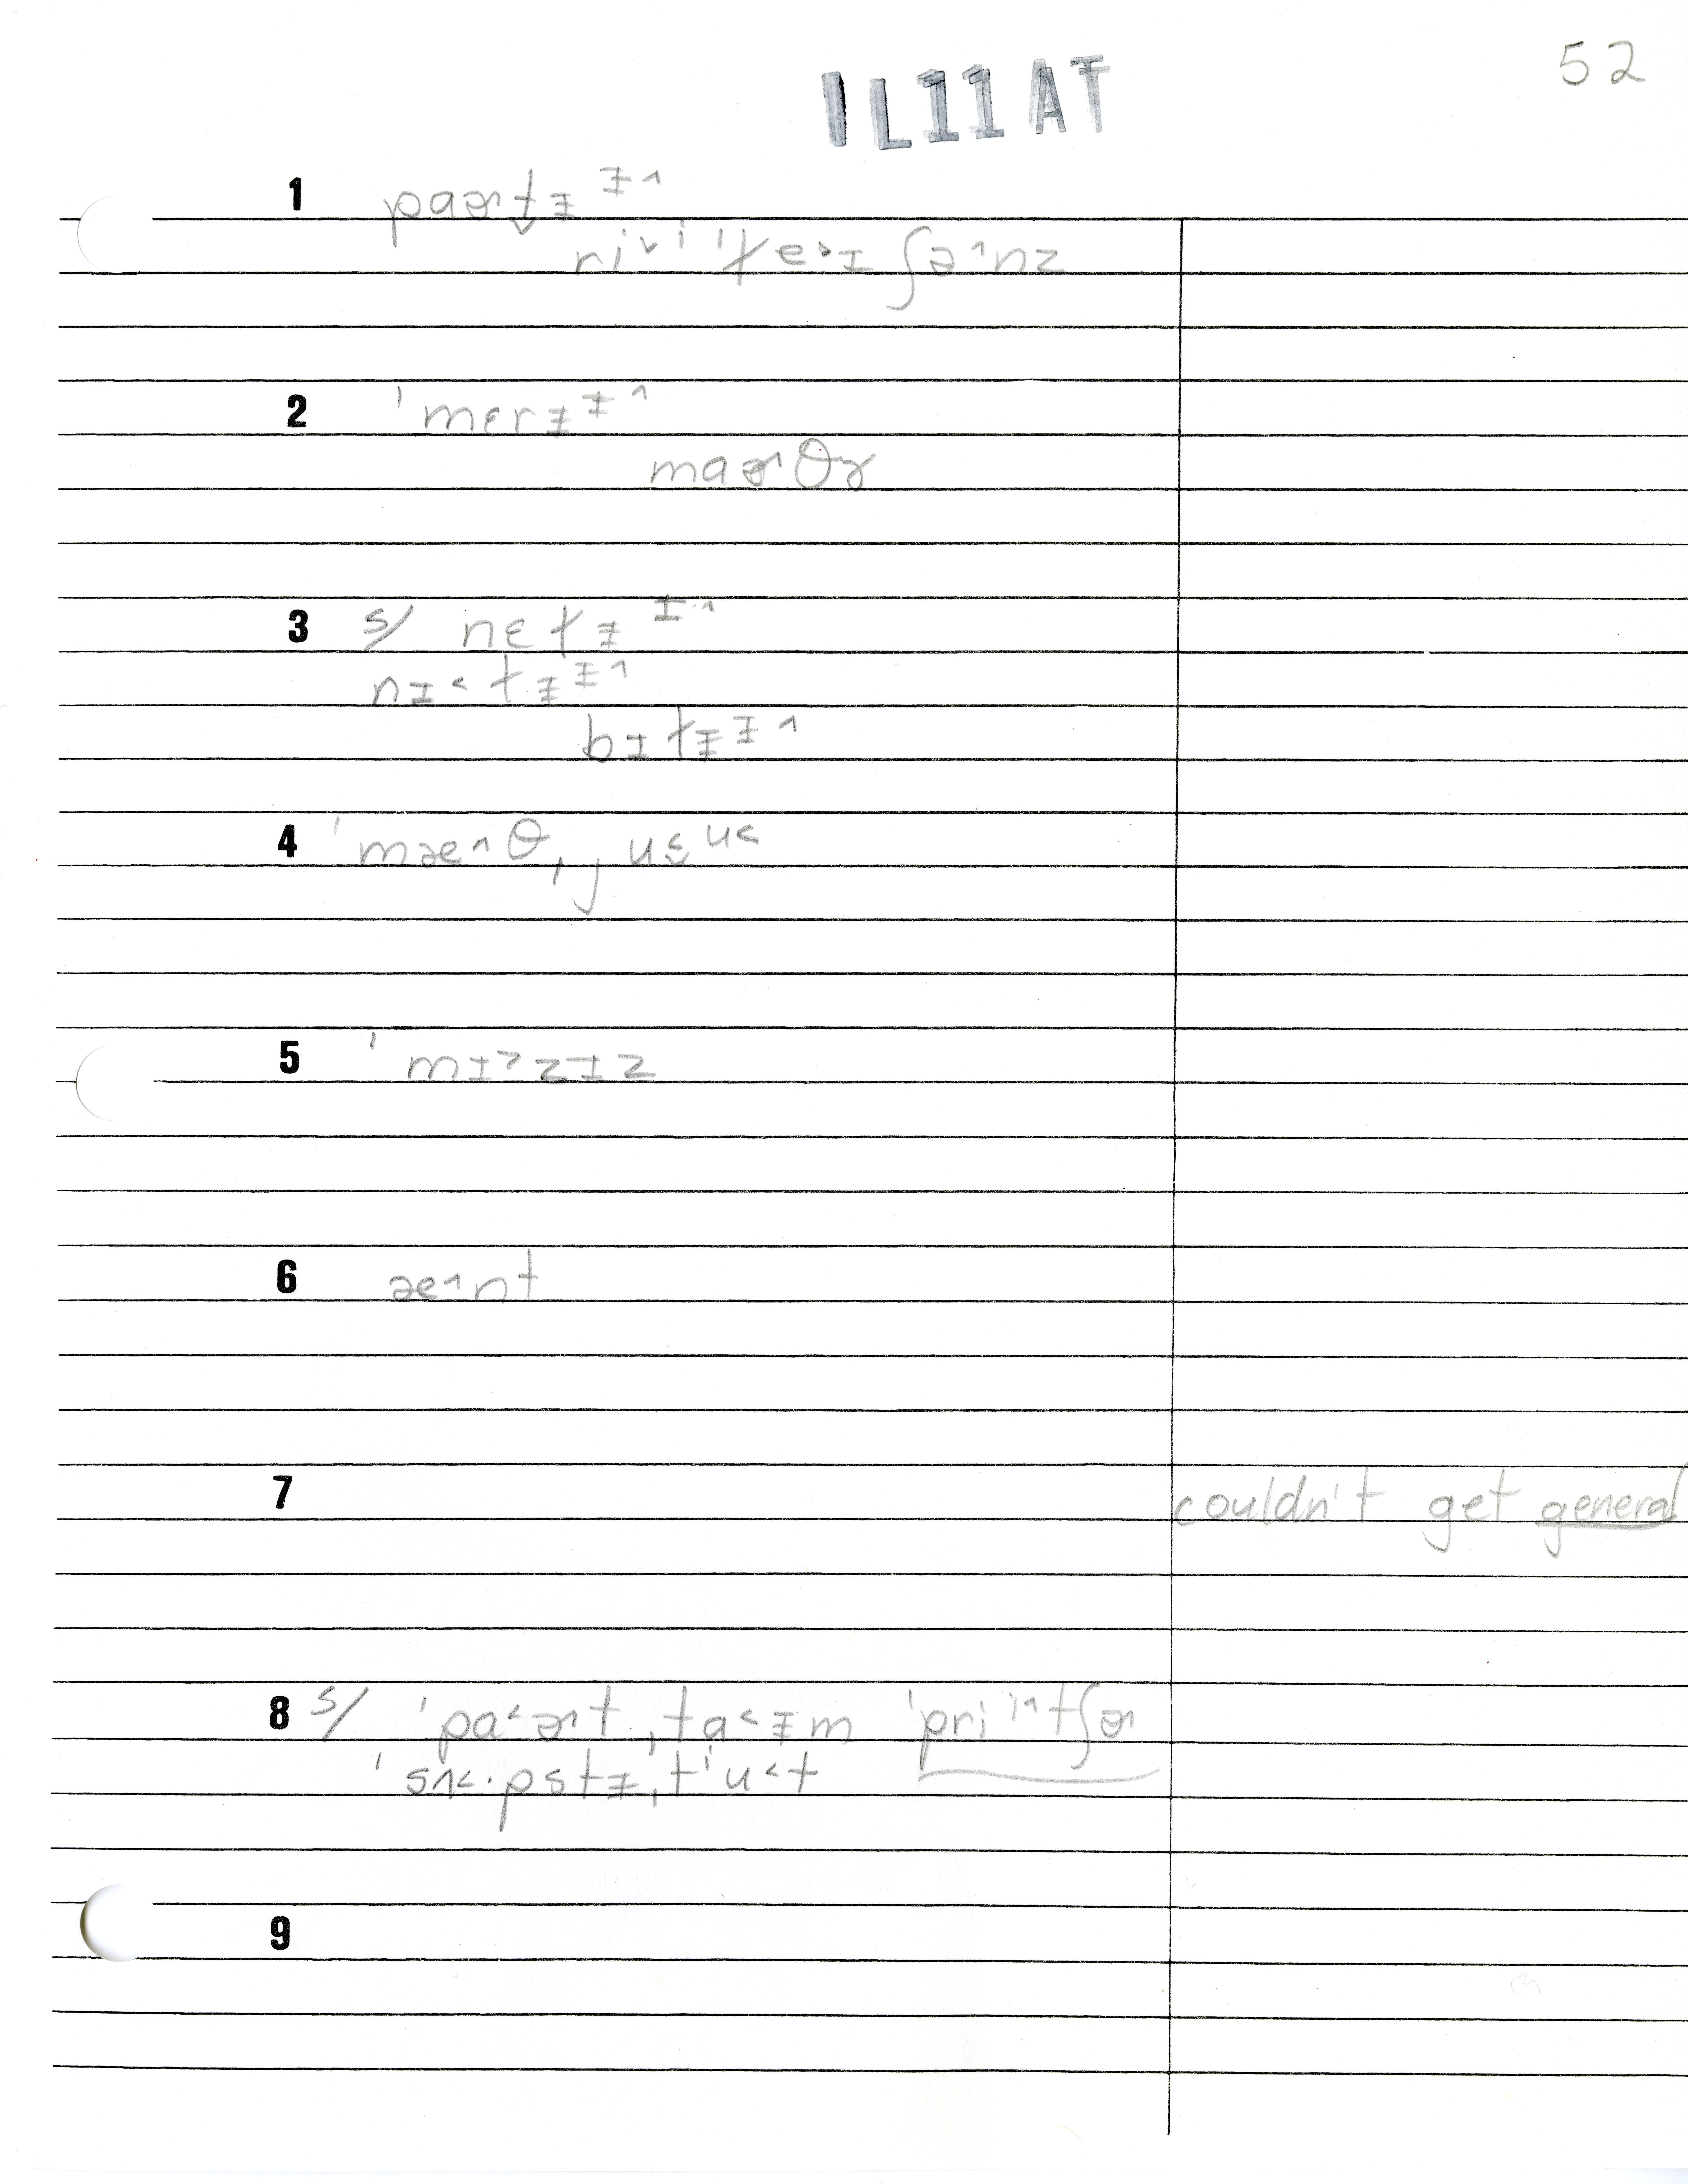 52
IL11AT
1 paɚt̬ɨ ᵻ^
riᵛⁱ ˈt̬e>ɪʃə^nz
2 ˈmɛrɨ ᵻ^
maɚθɤ
3 s/ nɛt̬ɨ ᶦ^
nɪ<t̬ɨ ᵻ^
bɪt̬ɨ ᵻ^
4 ˈmæ^θˌju<ᵘ<
5 ˈmɪ>zɪz
6 æ^nt
7 couldn't get general
8 s/ ˈpa<ɚtˌta<ɨm ˈpriⁱ^tʃɚ
ˈsʌ<·pstɨˌtʰu<t
9